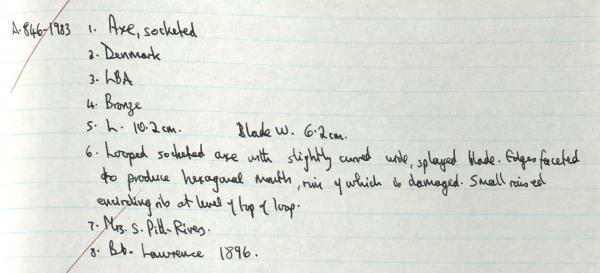 A.846-1983 1. Axe, socketed
2. Denmark
3. LBA
4. Bronze
5. L. 10.2cm. Blade W. 6.2cm.
6. Looped socketed axe with slightly curved wide, splayed blade. Edges faceted
to produce hexagonal mouth, rim of which is damaged. Small raised
encircling rib at level of top of loop.
7. Mrs. S. Pitt-Rivers.
8. Bt. Lawrence 1896.